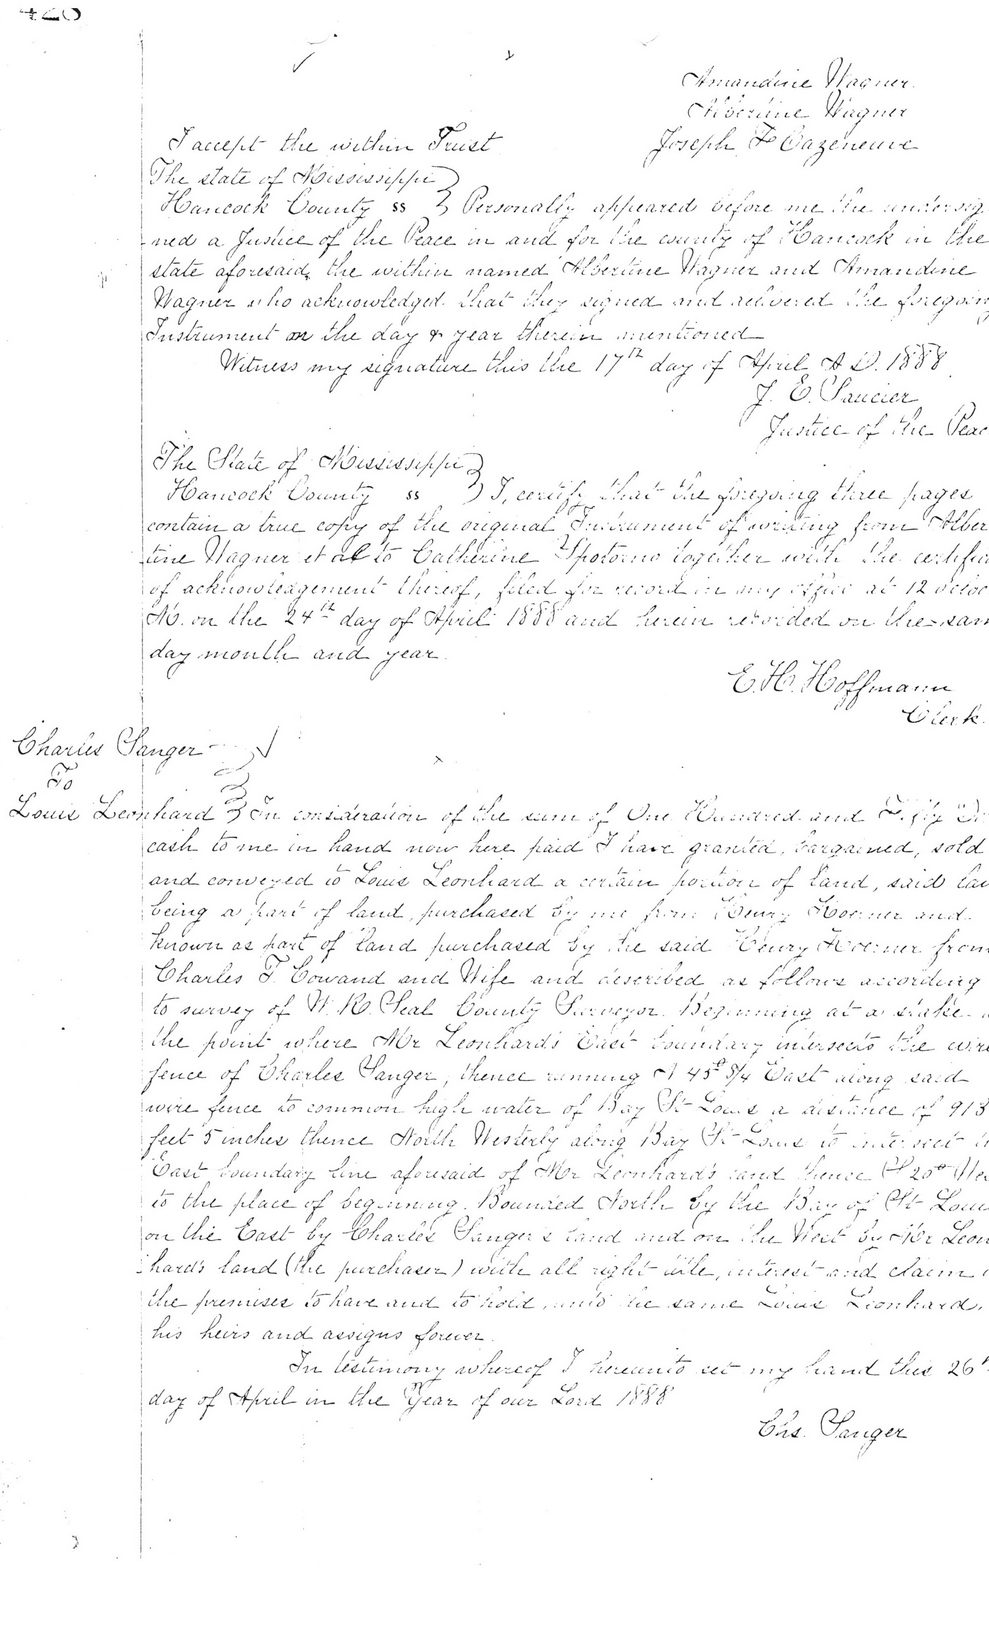 Amandine Wagner.
Albertine Wagner
I accept the within Trust Joseph F Cazeneuve
The state of Mississippi
Hancock County ss Personally appeared before me the undersig
ned a Justice of the Peace in and for the county of Hancock in the
state aforesaid, the within named Albertine Wagner and Amandine
Wagner who acknowledged that they signed and delivered the foregoing
Instrument on the day & year therein mentioned
Witness my signature this the 17th day of April A D. 1888
J. E. Saucier
Justice of the Peac
The State of Mississippi
Hancock County ss I, certify that the foregoing three pages
contain a true copy of the original Instrument of writing from Alber
tine Wagner et al to Catherine Spotorno together with the certific
of acknowledgement thereof, filed for record in my office at 12 ocloc
M. on the 24th day of April 1888 and herein recorded on the sam
day month and year.
E. H. Hoffmann
Clerk.
Charles Sanger
To
Louis Leonhard In consideration of the sum of One Hundred and Fifty
cash to me in hand now here paid I have granted, bargained, sold
and conveyed to Louis Leonhard a certain portion of land, said
being a part of land, purchased by me from Henry Koerner and
known as part of land purchased by the said Henry Koerner from
Charles T. Cowand and Wife and described as follows according
to survey of W. R. Seal County Surveyor. Beginning at a stake
the point where Mr Leonhard's East boundary intersects the wire
fence of Charles Sanger, thence running N 45° 3/4 East along said
wire fence to common high water of Bay St Louis a distance of 913
feet 5 inches thence North Westerly along Bay St Louis to intersect
East boundary line aforesaid of Mr Leonhard's land thence S 20°
to the place of beginning. Bounded North by the Bay of St Loui
on the East by Charles Sanger's land and on the West by Mr Leon
hard's land (the purchaser) with all right title, interest and claim
the premises to have and to hold unto the same Louis Leonhard,
his heirs and assigns forever.
In testimony whereof I hereunto set my hand this 26th
day of April in the Year of our Lord 1888
Chs. Sanger